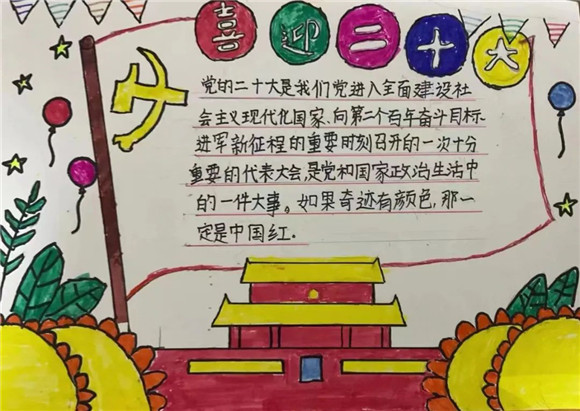 喜迎二十大
党的二十大是我们党进入全面建设社
会主义现代化国家、向第二个百年奋斗目标
进军新征程的重要时刻召开的一次十分
重要的代表大会,是党和国家政治生活中
的一件大事。如果奇迹有颜色,那一
定是中国红.